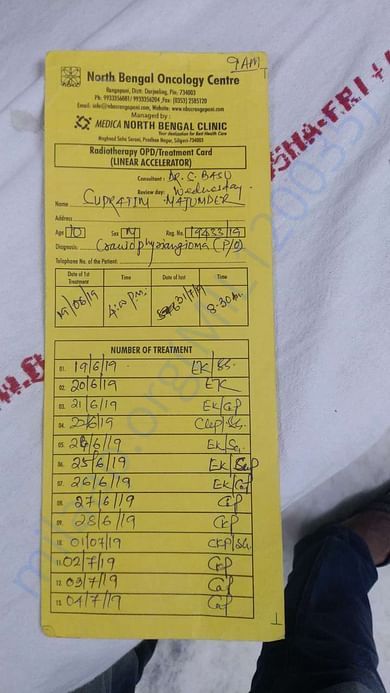 9AM
North Bengal Oncology Centre
Rangapani, Distt. Darjeeling, Pin: 734003
Ph: 9933356681/ 9933356204 ,Fax: (0353) 2585120
Managed by :
MEDICA NORTH BENGAL CLINIC
Your destination for Best Health Care
Meghnad Saha Sarani, Pradhan Nagar, Siliguri-734003
Radiotherapy OPD/Treatment Card
(LINEAR ACCELERATOR)
Consultant : DR. S. BASU
Review day: Wednesday
Name CUPRATIM MAJUMDER
Address
Age 10 Sex M Reg. No. 19433/19
Diagnosis Craniopharyngioma (P/O)
Telephone No. of the Patient
Date of 1st Treatment Time Date of last Time
19/06/19 4:00 Pm. 31/7/19 8.30AM
NUMBER OF TREATMENT
01. 19/6/19 EK/SS.
02. 20/6/19 EK
03. 21/6/19 EK/
04. /6/19
05. /6/19 EK/
06. 25/6/19 EK/
07. 26/6/19 EK/
08. 27/6/19
09. 28/6/19 CKP
10. 01/07/19 CKP/SS.
11. 02/7/19 CKP
12. 03/7/19
13. 04/7/19
SHA:FRI